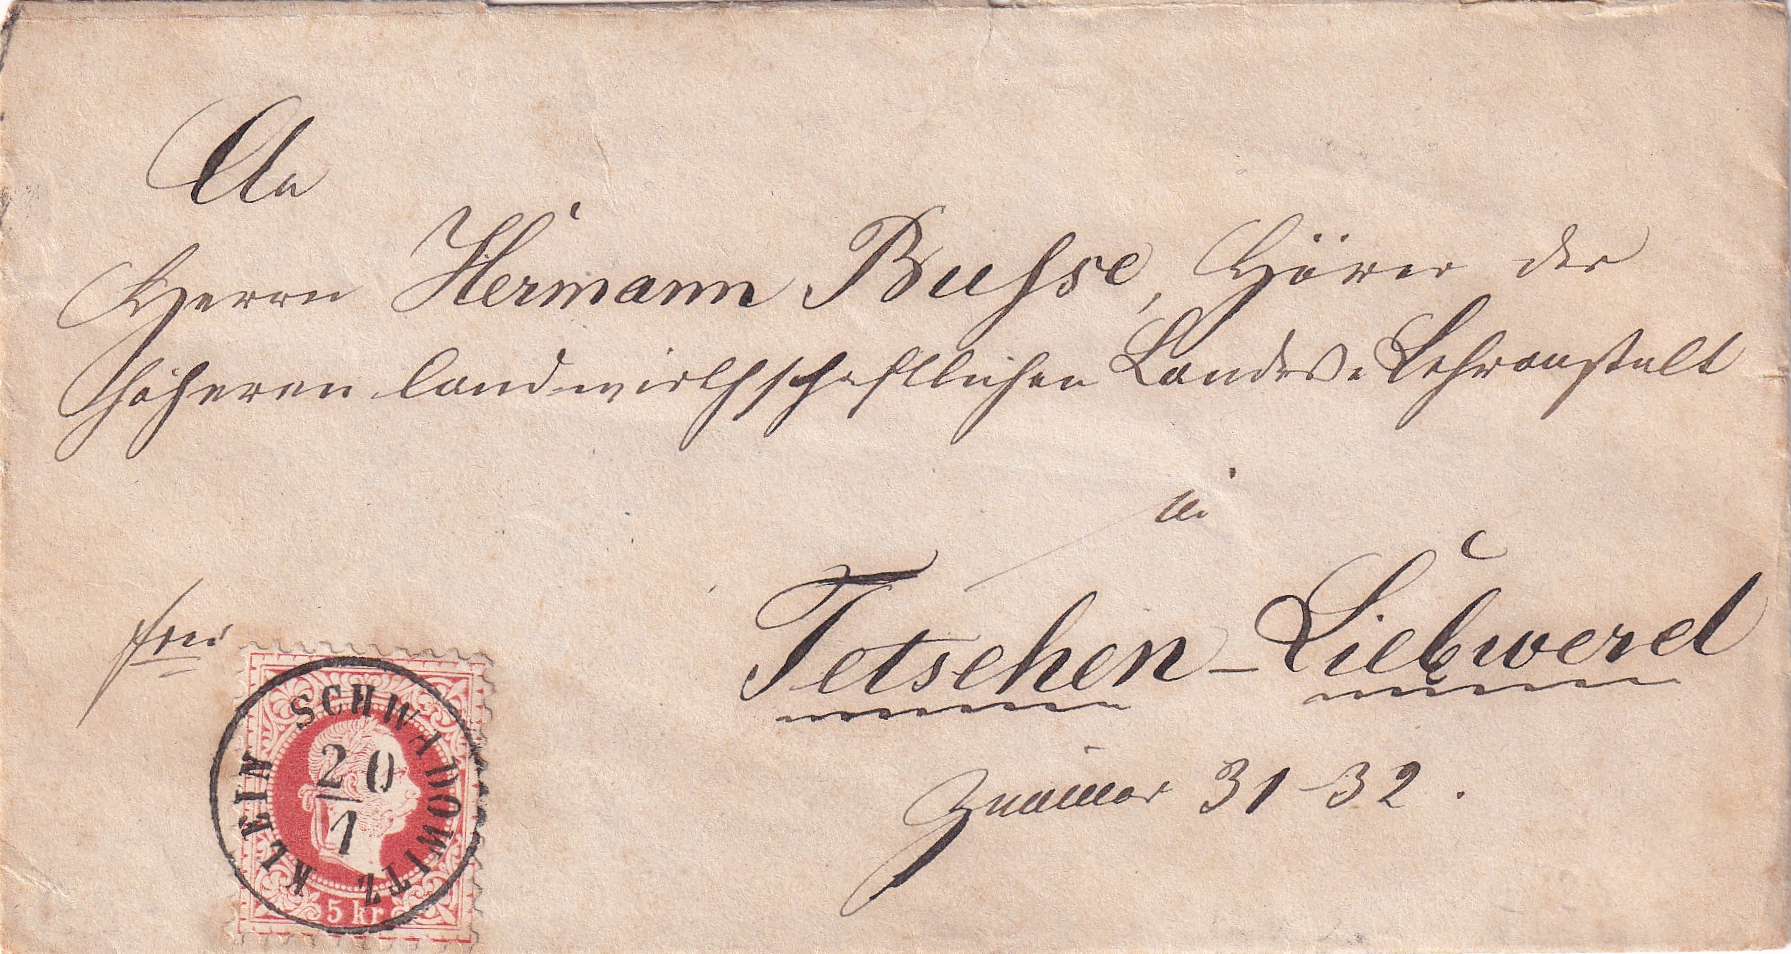 An
Herrn Hermann Busse, Hörer der
höheren landwirthschaftlichen Landes-Lehranstalt
in
Tetschen-Liebwerd
frei
Zimmer 31-32.
KLEIN SCHWADOWITZ
20
1
5 kr